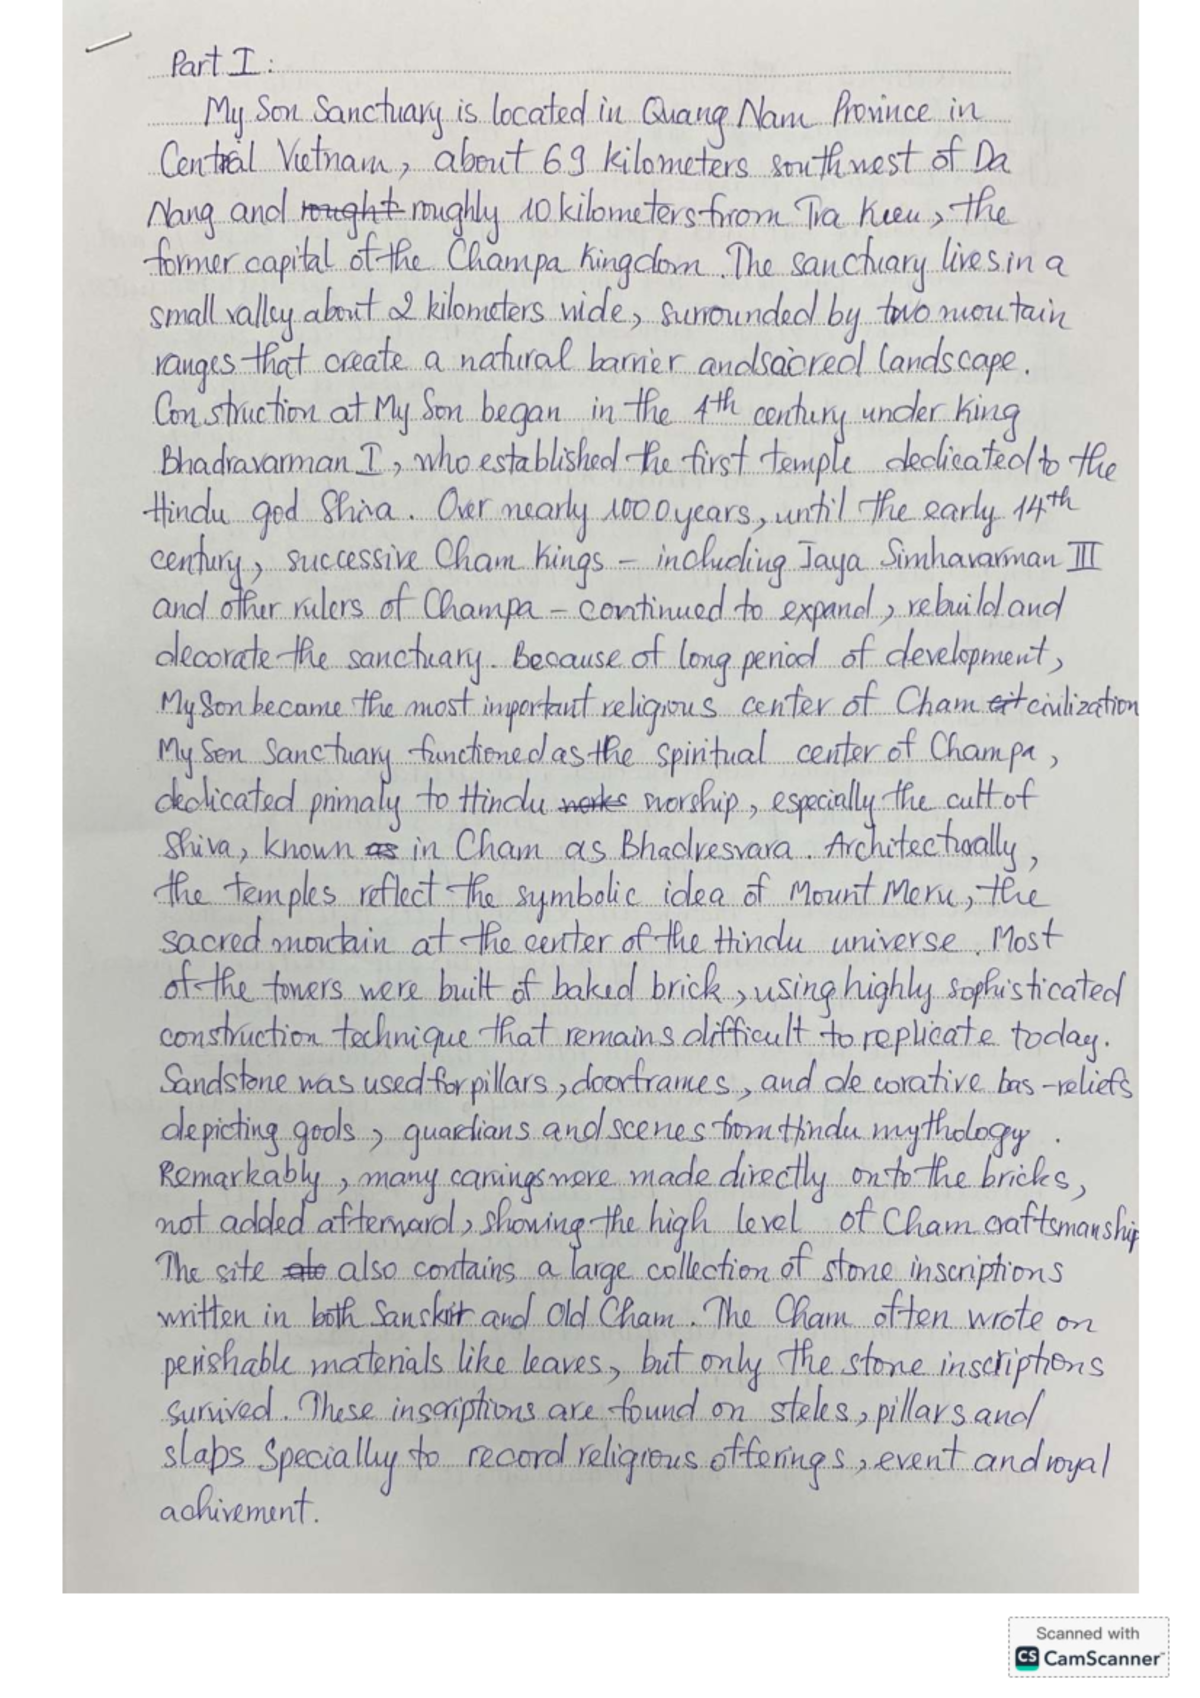 Part I:
My Son Sanctuary is located in Quang Nam Province in
Central Vietnam, about 69 kilometers southwest of Da
Nang and rought roughly 10 kilometers from Tra Kieu, the
former capital of the Champa Kingdom. The sanctuary lives in a
small valley about 2 kilometers wide, surrounded by two mountain
ranges that create a natural barrier and sacred landscape.
Construction at My Son began in the 4th century under King
Bhadravarman I, who established the first temple dedicated to the
Hindu god Shiva. Over nearly 1000 years, until the early 14th
century, successive Cham Kings – including Jaya Simhavarman III
and other rulers of Champa – continued to expand, rebuild and
decorate the sanctuary. Because of long period of development,
My Son became the most important religious center of Cham cit civilization
My Son Sanctuary functioned as the spiritual center of Champa,
dedicated primaly to Hindu works worship, especially the cult of
Shiva, known as in Cham as Bhadresvara. Architecturally,
the temples reflect the symbolic idea of Mount Meru, the
sacred moutain at the center of the Hindu universe. Most
of the towers were built of baked brick, using highly sophisticated
construction technique that remains difficult to replicate today.
Sandstone was used for pillars, doorframes, and decorative bas-reliefs
depicting gods, guardians and scenes from Hindu mythology.
Remarkably, many carvings were made directly onto the bricks,
not added afterward, showing the high level of Cham craftsmanship
The site alo also contains a large collection of stone inscriptions
written in both Sanskrit and Old Cham. The Cham often wrote on
perishable materials like leaves, but only the stone inscriptions
survived. These inscriptions are found on steles, pillars and
slabs Specially to record religious offerings, event and royal
achivement.
Scanned with
CS CamScanner